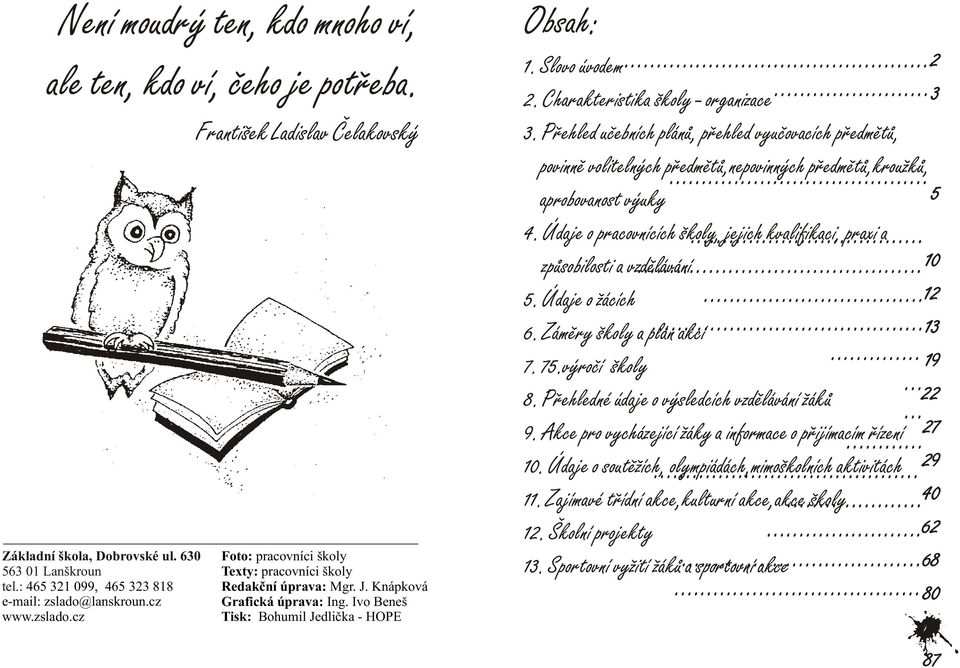 Není moudrý ten, kdo mnoho ví,
ale ten, kdo ví, čeho je potřeba.
František Ladislav Čelakovský
Základní škola, Dobrovské ul. 630
563 01 Lanškroun
tel.: 465 321 099, 465 323 818
e-mail: zslado@lanskroun.cz
www.zslado.cz
Foto: pracovníci školy
Texty: pracovníci školy
Redakční úprava: Mgr. J. Knápková
Grafická úprava: Ing. Ivo Beneš
Tisk: Bohumil Jedlička - HOPE
Obsah:
1. Slovo úvodem 2
2. Charakteristika školy - organizace 3
3. Přehled učebních plánů, přehled vyučovacích předmětů,
povinně volitelných předmětů, nepovinných předmětů, kroužků,
aprobovanost výuky 5
4. Údaje o pracovnících školy, jejich kvalifikaci, praxi a
způsobilosti a vzdělávání 10
5. Údaje o žácích 12
6. Záměry školy a plán akcí 13
7. 75.výročí školy 19
8. Přehledné údaje o výsledcích vzdělávání žáků 22
9. Akce pro vycházející žáky a informace o přijímacím řízení 27
10. Údaje o soutěžích, olympiádách, mimoškolních aktivitách 29
11. Zajímavé třídní akce, kulturní akce, akce školy 40
12. Školní projekty 62
13. Sportovní vyžití žáků a sportovní akce 68
80
87